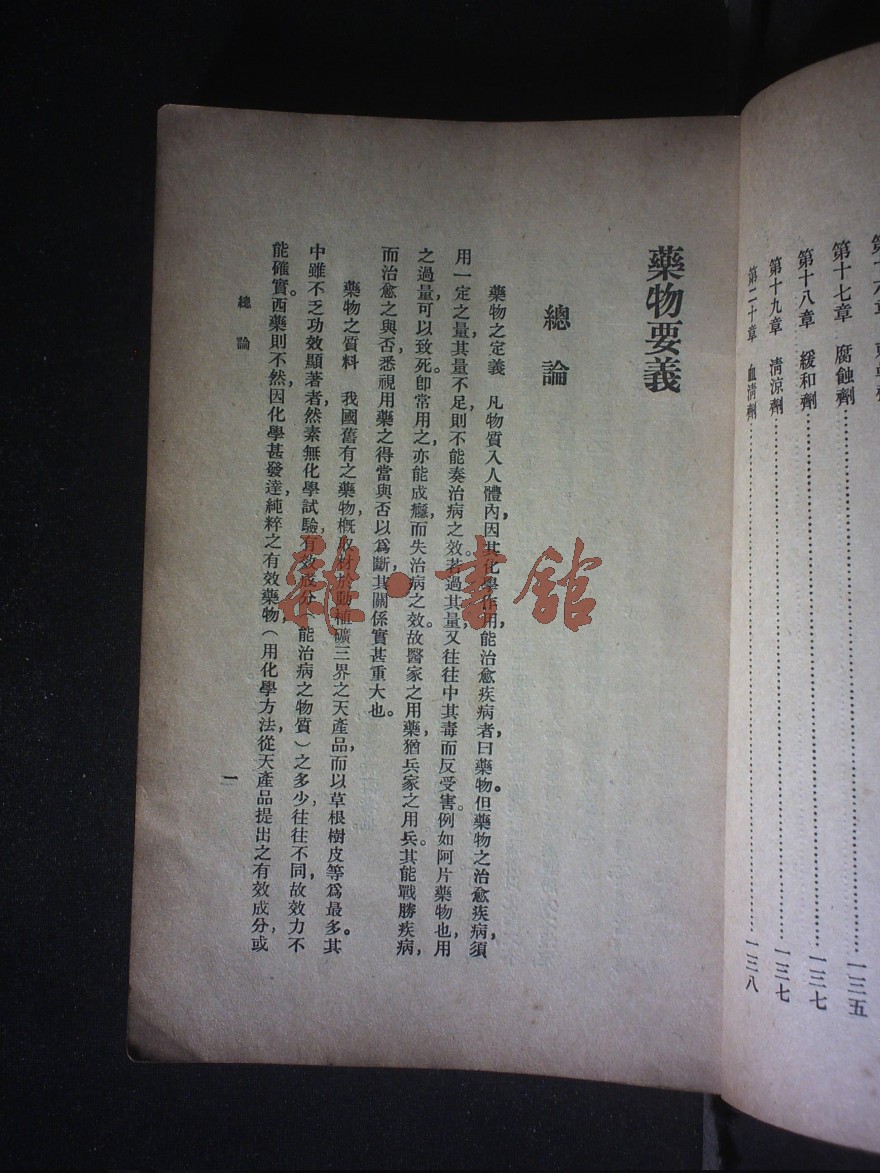 第十七章 腐蝕劑……一三五
第十八章 緩和劑……一三七
第十九章 清涼劑……一三七
第二十章 血清劑……一三八
藥物要義
總論
藥物之定義 凡物質入人體內,因其化學作用,能治愈疾病者,曰藥物。但藥物之治愈疾病,須
用一定之量,其量不足,則不能奏治病之效。若過其量,又往往中其毒而反受害。例如阿片藥物也,用
之過量,可以致死。卽常用之,亦能成癮,而失治病之效。故醫家之用藥,猶兵家之用兵。其能戰勝疾病,
而治愈之與否,悉視用藥之得當與否以爲斷,其關係實甚重大也。
藥物之質料 我國舊有之藥物,槪取材於動植礦三界之天產品,而以草根樹皮等爲最多。其
中雖不乏功效顯著者,然素無化學試驗,有效成分(能治病之物質)之多少,往往不同,故效力不
能確實。西藥則不然,因化學甚發達,純粹之有效藥物,(用化學方法,從天產品提出之有效成分,或
總論
一
雜·書館